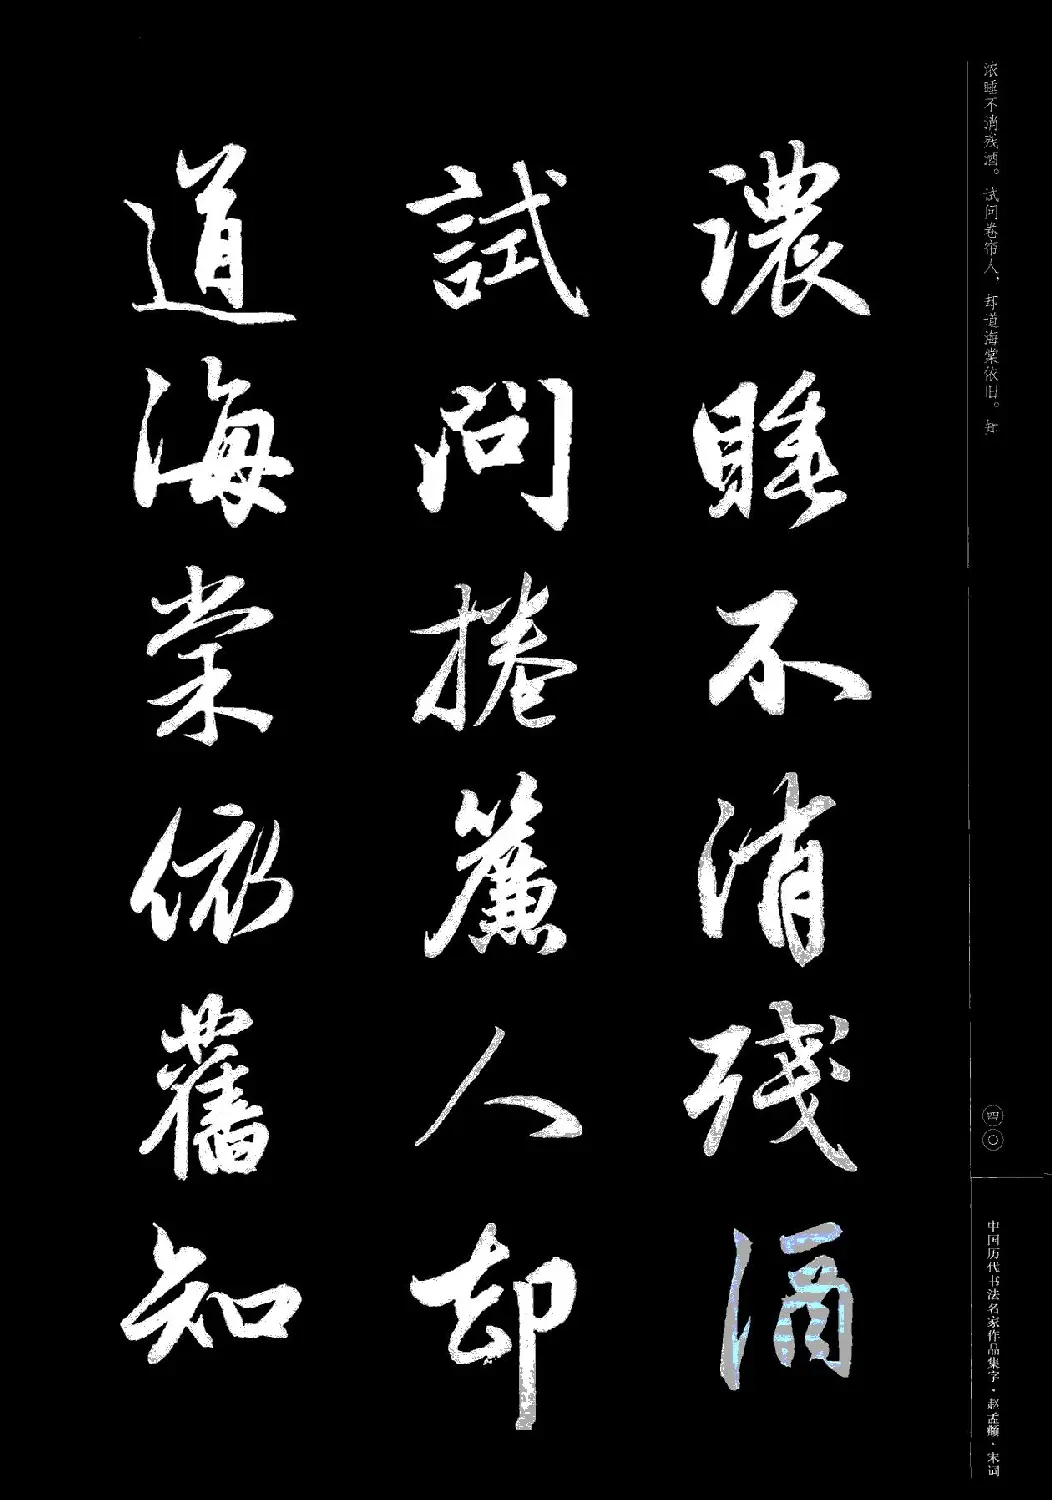 浓睡不消残酒。试问卷帘人，却道海棠依旧。知
濃睡不消殘酒
試問捲簾人却
道海棠依舊知
四〇
中国历代书法名家作品集字·赵孟頫·宋词